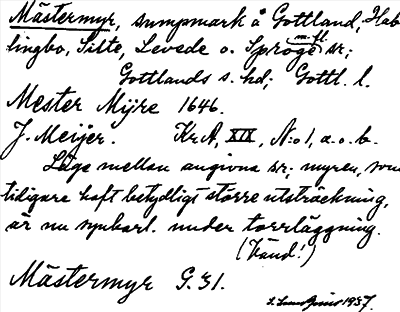 Mästermyr, sumpmark å Gottland, Hab
lingbo, Silte, Levede o. Sproge m.fl. sr;
Gottlands s. hd; Gottl. l.
Mester Mÿre 1646.
J. Meijer. Kr.A, XIX, N:o 1, a. o. b.
Läge mellan angivna sr; myren, som
tidigare haft betydligt större utsträckning,
är nu synbarl. under torrläggning.
(Vänd!)
Mästermyr G. 31.
1937.